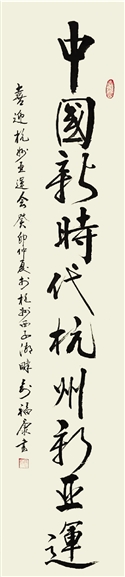 中國新時代杭州新亞運
喜迎杭州亚運会癸卯仲夏於杭州西子湖畔彭福康书